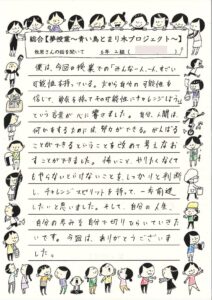 総合【夢授業〜青い鳥とまり木プロジェクト〜】
さんの話を聞いて 5年2組(
僕は、今回の授業での「みんな一人一人、すごい
可能性を持っている。だから自分の可能性を
信じて、勇気を持ってその可能性にチャレンジしよう」
という言葉が心に響きました。自分、人間は、
何かをするためには努力ができる。がんばる
ことができるということを改めて考えなお
すことができました。怖いこと、やりたくなくて
もやらないとならないことを、しっかりと判断
をし、チャレンジスピリットを持って、一歩前進
したいと思いました。そして、自分の人生、
自分の歩みを自分で切りひらいていきた
いです。今回は、ありがとうございま
した。